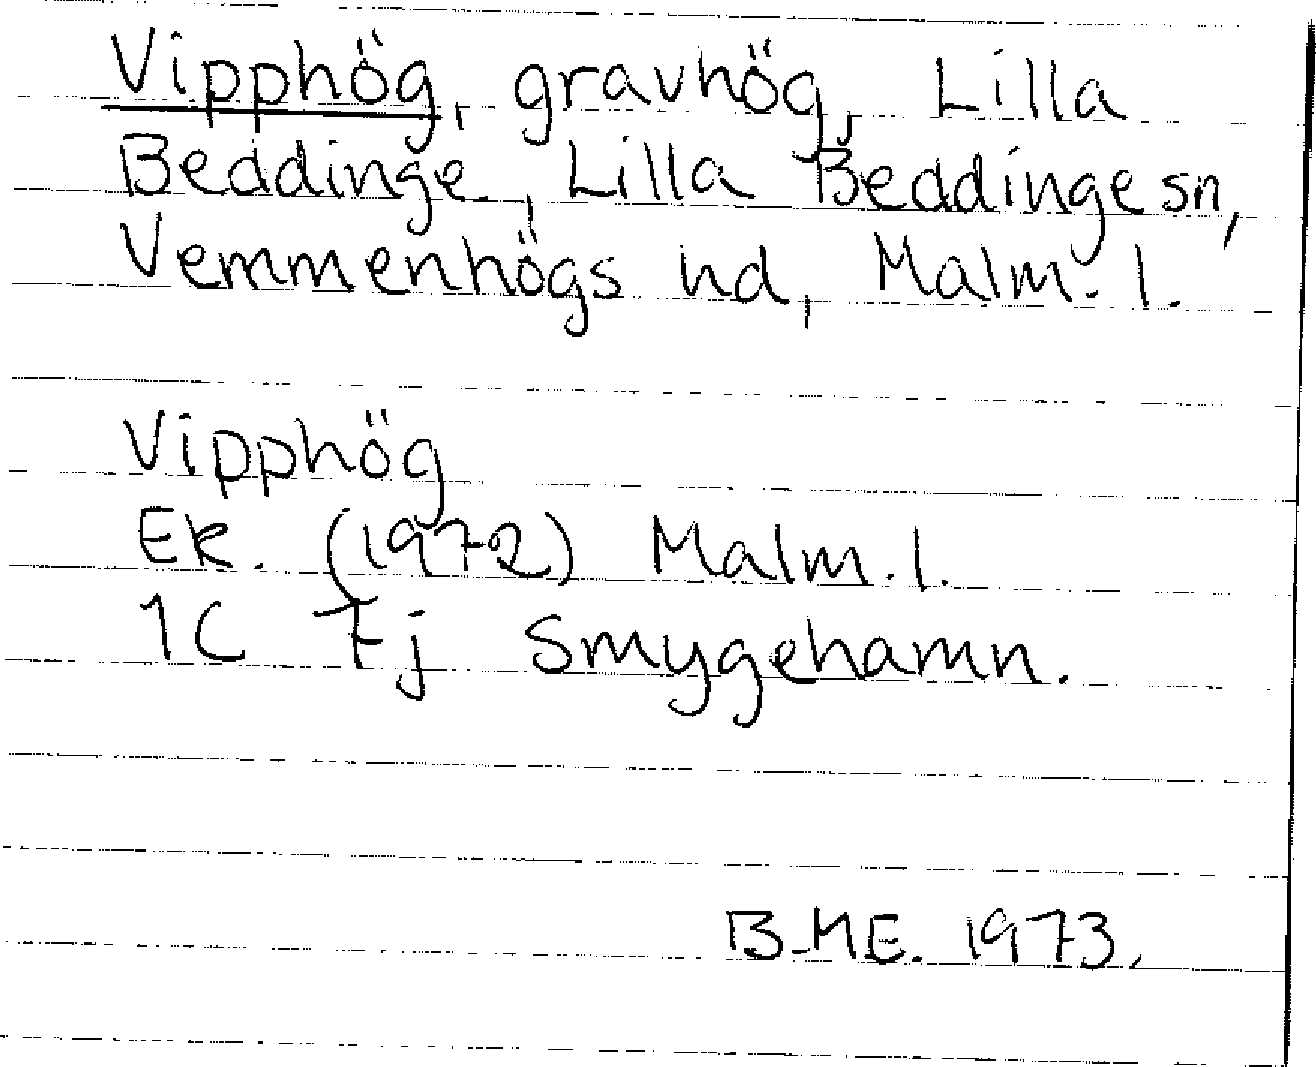 Vipphög, gravhög, Lilla
Beddinge, Lilla Beddinge sn,
Vemmenhögs hd, Malm. l.
Vipphög
Ek. (1972) Malm. l.
1C 7j Smygehamn.
B-ME. 1973.